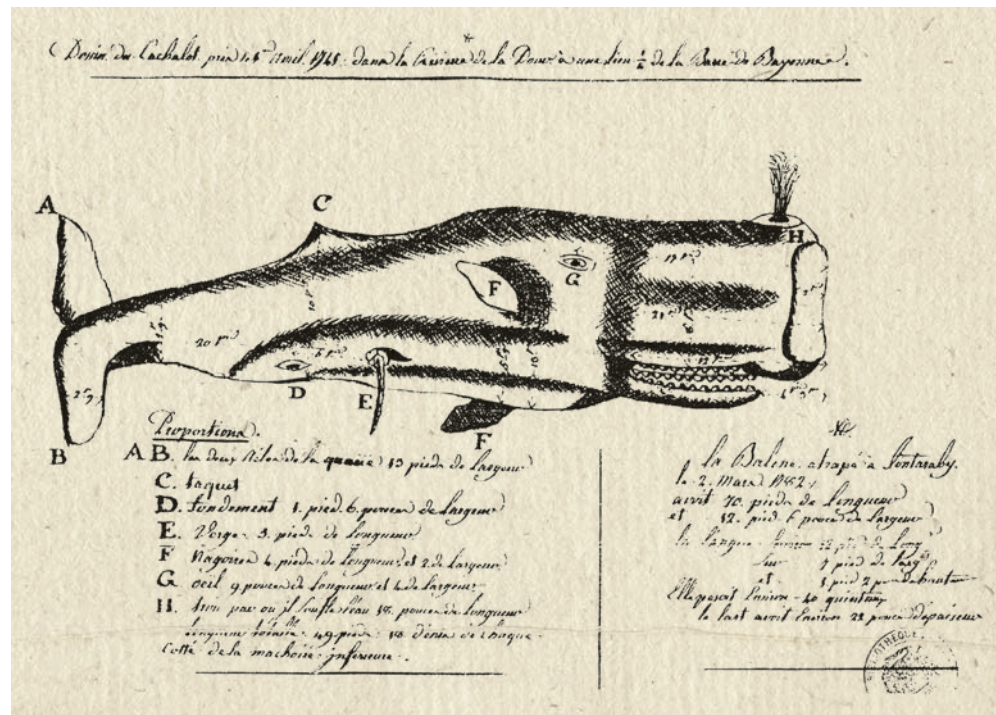 Dessin du Cachalot pris le 1er Avril 1741 dans la Riviere de la Dour à une lieu ½ de la Barre de Bayonne.
A
C
H
G
F
17 Pds
10 Pds
20 Pds
D
E
F
B
Proportions.
A B. les deux Ailes de la queuë 13 pieds de largeur
C. taquet
D. fondement 1. pied. 6. pouces de largeur
E. Verge 3. pieds de Longueur
F Nagoires 4. pieds de Longueur et 2. de Largeur
G oeil 9. pouces de Longueur et 4. de Largeur
H. trou par ou il soufle l'eau 18. pouces de longueur
longueur totalle 49 pieds. 18 dents de chaque
Cotté de la machoire inferieure.
la Baleine atrapé à fontaraby
le 2. Mars
avoit 70. pieds de Longueur
et 12. pied 6 pouces de Largeur
la Langue Environ 12 pds de Long
7 pieds de larg
et 3 pied 2 pouces de haut
Elle pesoit Environ 40 quintaux
le lart avoit Environ 22 pouces d'épaisseur